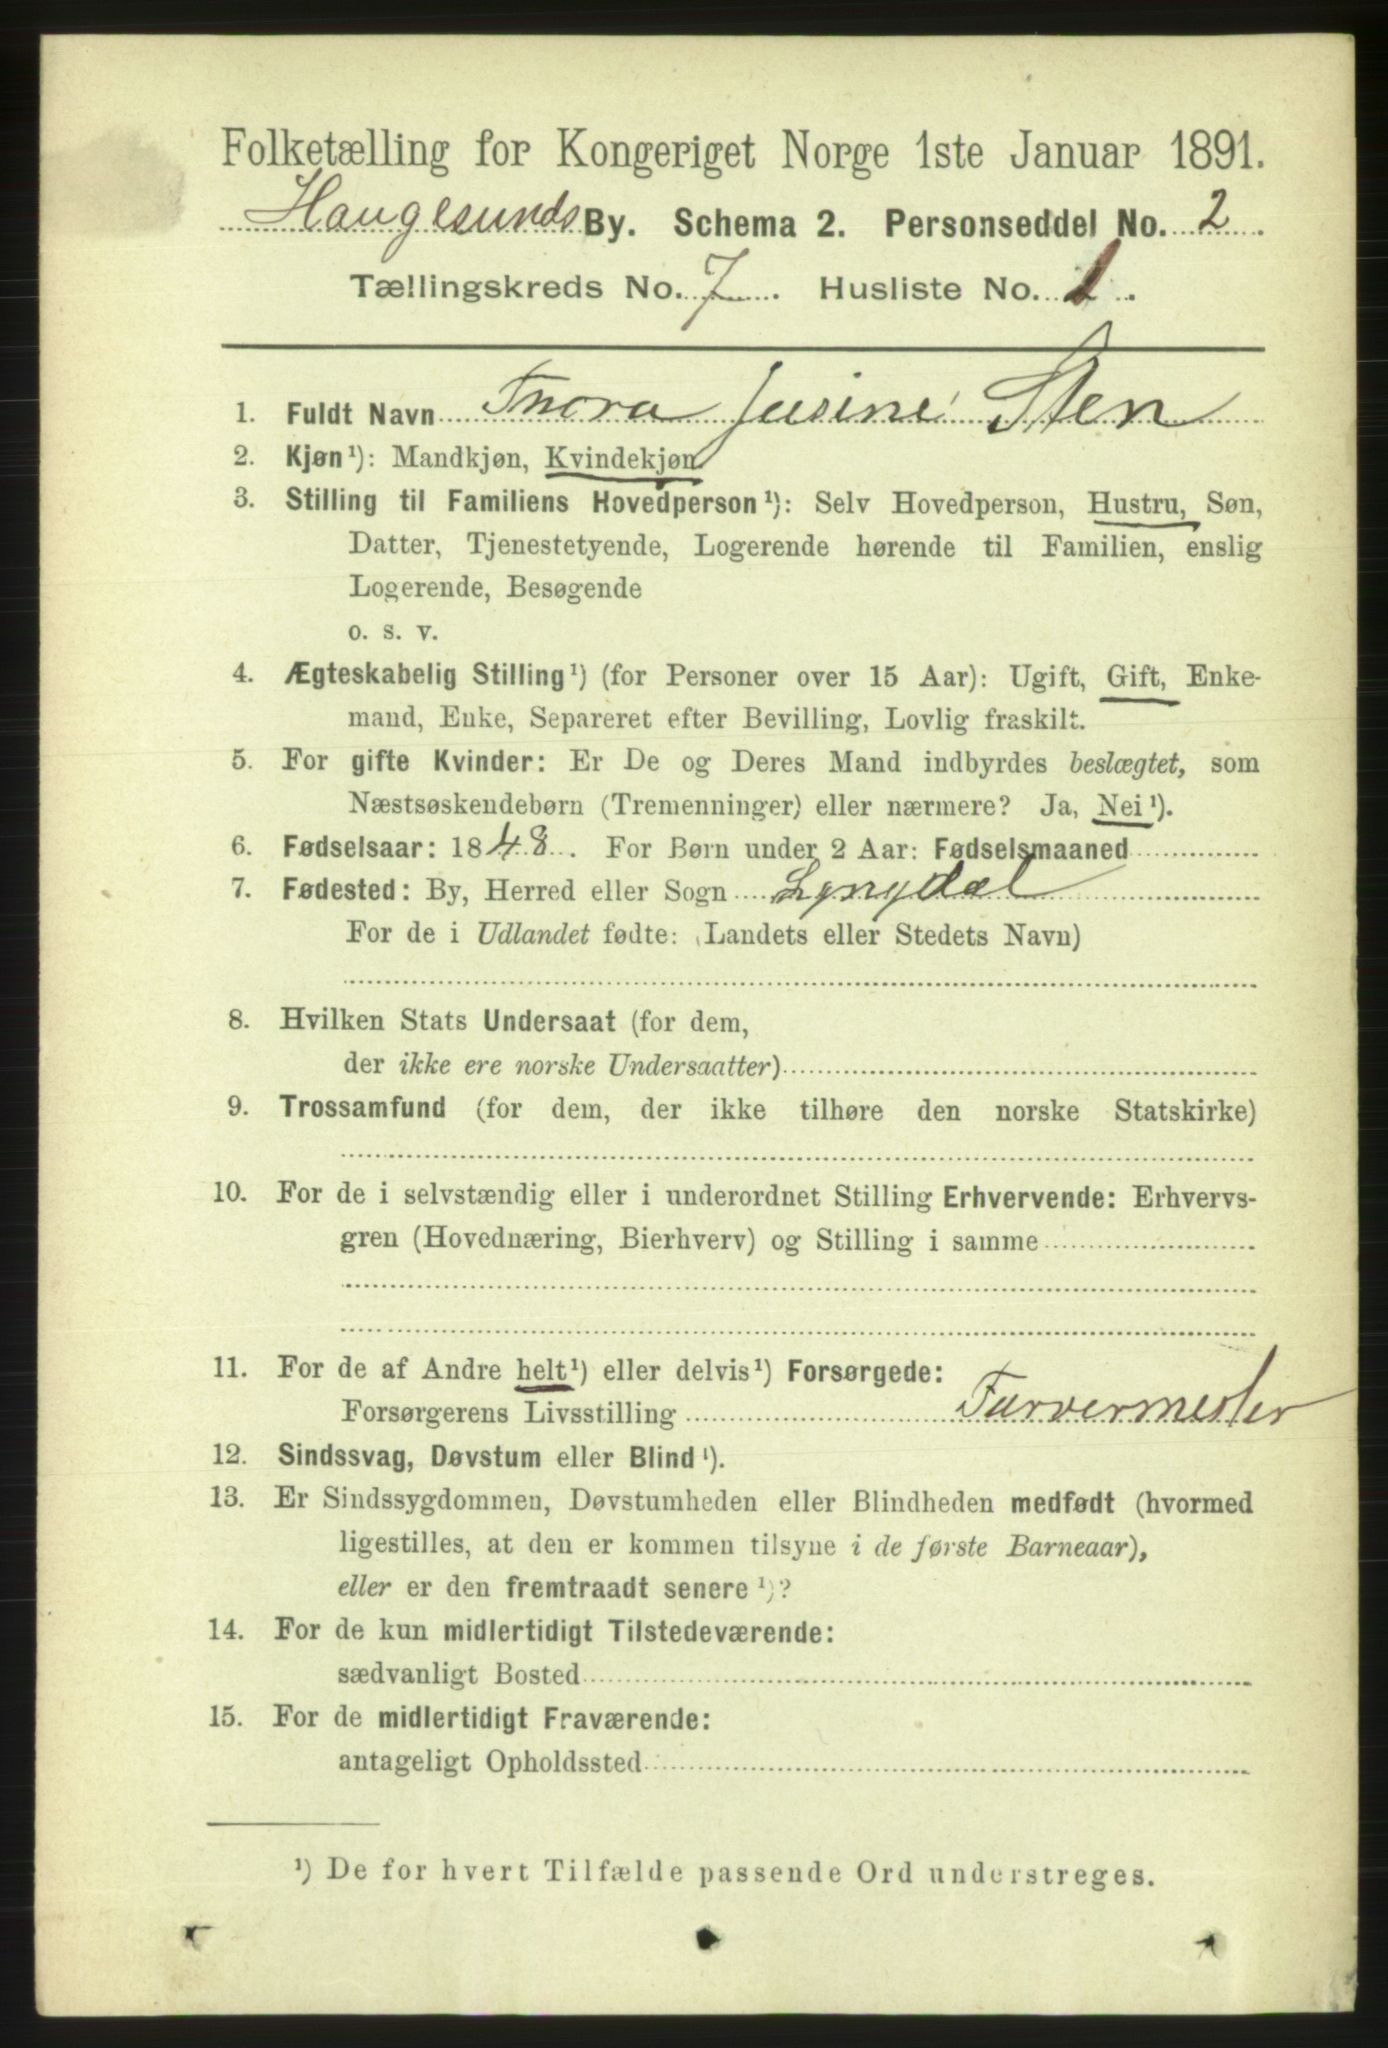 Folketælling for Kongeriget Norge 1ste Januar 1891.
Haugesunds By. Schema 2. Personseddel No. 2
Tællingskreds No. 7. Husliste No. 1.
1. Fuldt Navn Thora Jusine Sten
2. Kjøn¹): Mandkjøn, Kvindekjøn
3. Stilling til Familiens Hovedperson¹): Selv Hovedperson, Hustru, Søn,
Datter, Tjenestetyende, Logerende hørende til Familien, enslig
Logerende, Besøgende
o. s. v.
4. Ægteskabelig Stilling¹) (for Personer over 15 Aar): Ugift, Gift, Enke-
mand, Enke, Separeret efter Bevilling, Lovlig fraskilt.
5. For gifte Kvinder: Er De og Deres Mand indbyrdes beslægtet, som
Næstsøskendebørn (Tremenninger) eller nærmere? Ja, Nei¹).
6. Fødselsaar: 1848. For Børn under 2 Aar: Fødselsmaaned
7. Fødested: By, Herred eller Sogn Lyngdal
For de i Udlandet fødte: (Landets eller Stedets Navn)
8. Hvilken Stats Undersaat (for dem,
der ikke ere norske Undersaatter)
9. Trossamfund (for dem, der ikke tilhøre den norske Statskirke)
10. For de i selvstændig eller i underordnet Stilling Erhvervende: Erhvervs-
gren (Hovednæring, Bierhverv) og Stilling i samme
11. For de af Andre helt¹) eller delvis¹) Forsørgede:
Forsørgerens Livsstilling Farvermester
12. Sindssvag, Døvstum eller Blind¹).
13. Er Sindssygdommen, Døvstumheden eller Blindheden medfødt (hvormed
ligestilles, at den er kommen tilsyne i de første Barneaar),
eller er den fremtraadt senere¹)?
14. For de kun midlertidigt Tilstedeværende:
sædvanligt Bosted
15. For de midlertidigt Fraværende:
antageligt Opholdssted
¹) De for hvert Tilfælde passende Ord understreges.